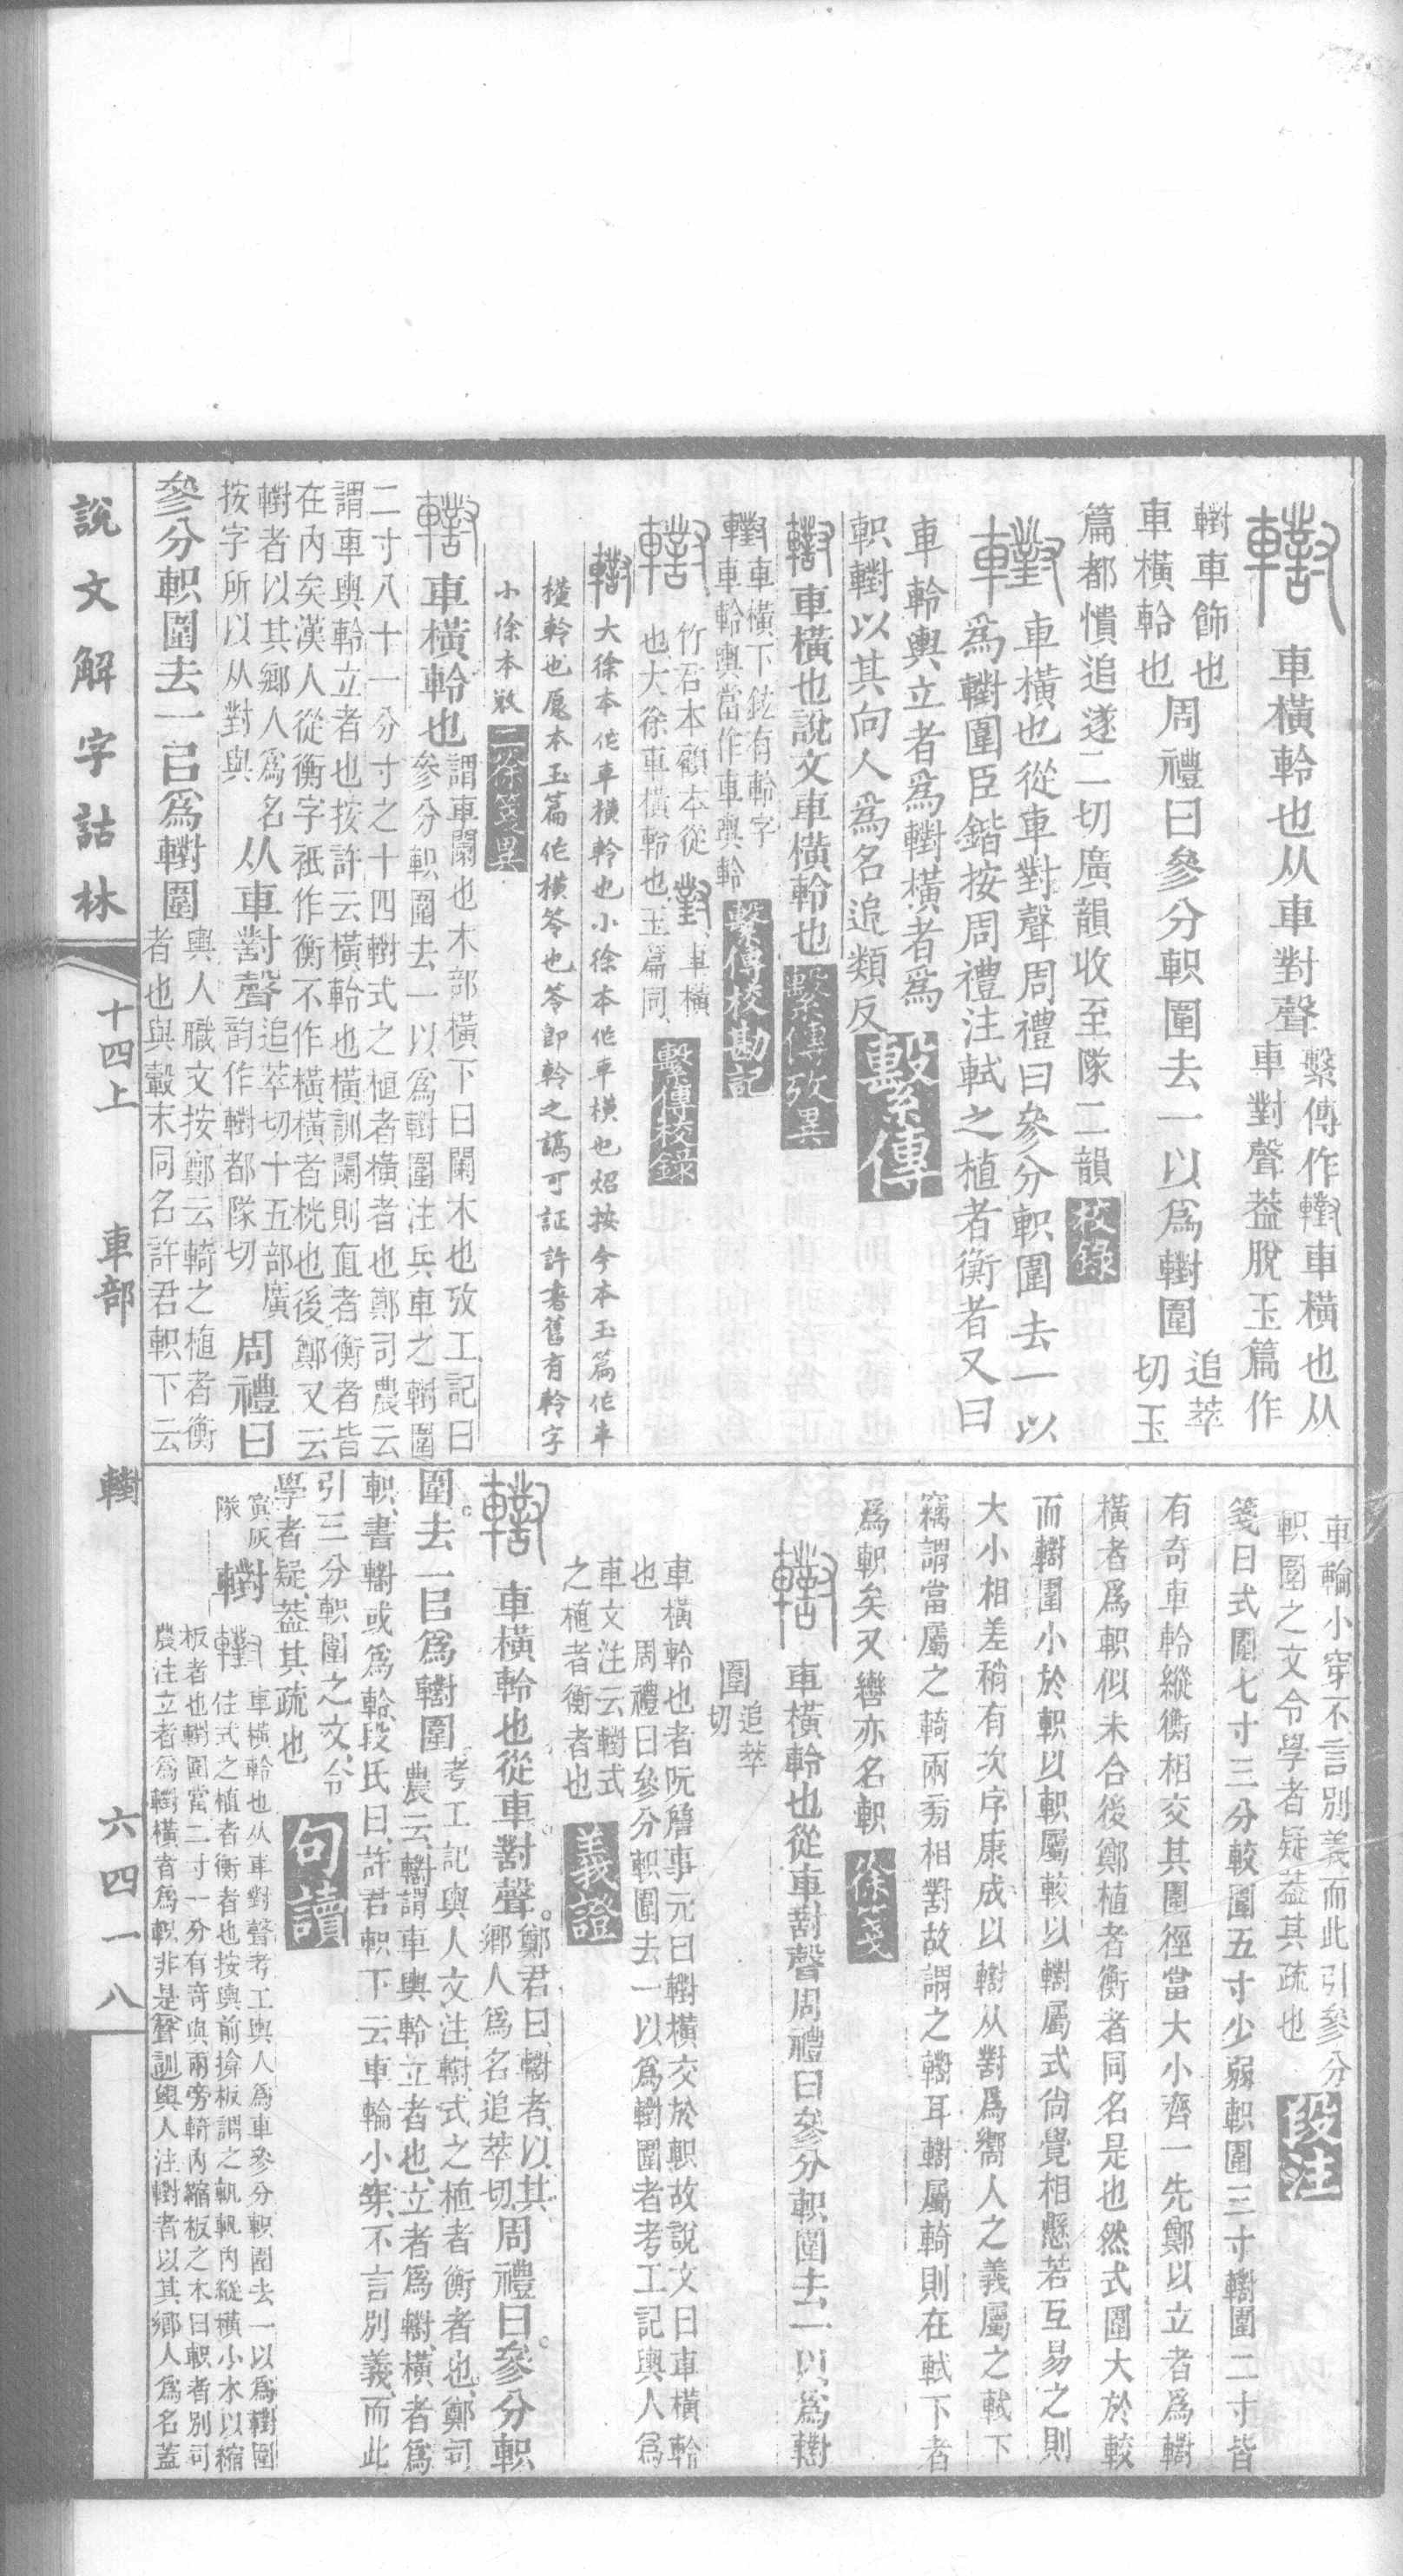 車橫軨也从車對聲繫傳作轛車橫也从
車對聲葢脫玉篇作
轛車飾也
車橫軨也周禮曰參分軹圍去一以爲轛圍追萃
切玉
篇都憒追遂二切廣韻收至隊二韻校錄
轛車橫也從車對聲周禮曰參分軹圍去一以
爲轛圍臣鍇按周禮注軾之植者衡者又曰
車軨輿立者爲轛橫者爲
軹轛以其向人爲名追類反繫傳
轛車橫也說文車橫軨也繫傳攷異
轛車橫下鉉有軨字
車軨輿當作車輿軨繫傳校勘記
轛竹君本顧本從對車橫
也大徐車橫軨也玉篇同繫傳校錄
轛大徐本作車橫軨也小徐本作車橫也炤按今本玉篇作車
橫軨也原本玉篇作橫笭也笭卽軨之譌可証許書舊有軨字
小徐本敚二徐箋異
轛車橫軨也謂車闌也木部橫下曰闌木也攷工記曰
參分軹圍去一以爲轛圍注兵車之轛圍
二寸八十一分寸之十四轛式之植者橫者也鄭司農云
謂車輿軨立者也按許云橫軨也橫訓闌則直者衡者皆
在內矣漢人從衡字祇作衡不作橫橫者桄也後鄭又云
轛者以其鄉人爲名从車對聲追萃切十五部廣
按字所以从對與韵作轛都隊切周禮曰
參分軹圍去一㠯爲轛圍輿人職文按鄭云輢之植者衡
者也與轂末同名許君軹下云
車輪小穿不言別義而此引參分
軹圍之文令學者疑葢其疏也段注
箋曰式圍七寸三分較圍五寸少弱軹圍三寸轛圍二寸皆
有奇車軨縱衡相交其圍徑當大小齊一先鄭以立者爲轛
橫者爲軹似未合後鄭植者衡者同名是也然式圍大於較
而轛圍小於軹以軹屬較以轛屬式尙覺相懸若互易之則
大小相差稍有次序康成以轛从對爲嚮人之義屬之軾下
竊謂當屬之輢兩旁相對故謂之轛耳轛屬輢則在軾下者
爲軹矣又轊亦名軹徐箋
轛車橫軨也從車對聲周禮曰參分軹圍去一以爲轛
圍追萃
切
車橫軨也者阮詹事元曰轛橫交於軹故說文曰車橫軨
也周禮曰參分軹圍去一以爲轛圍者考工記輿人爲
車文注云轛式
之植者衡者也義證
轛車橫軨也從車對聲鄭君曰轛者以其
鄉人爲名追萃切周禮曰參分軹
圍去一㠯爲轛圍考工記輿人文注轛式之植者衡者也鄭司
農云轛謂車輿軨立者也立者爲轛橫者爲
軹書轛或爲軨段氏曰許君軹下云車輪小穿不言別義而此
引三分軹圍之文令
學者疑葢其疏也句讀
寅灰
隊轛車橫軨也从車對聲考工輿人爲車參分軹圍去一以爲轛圍
注式之植者衡者也按輿前揜板謂之軓軓內縱橫小木以縮
板者也轛圍當二寸一分有奇與兩旁輢內縮板之木曰軹者別司
農注立者爲轛橫者爲軹非是聲訓輿人注轛者以其鄉人爲名蓋
說文解字詁林
十四上
車部
轛
六四一八